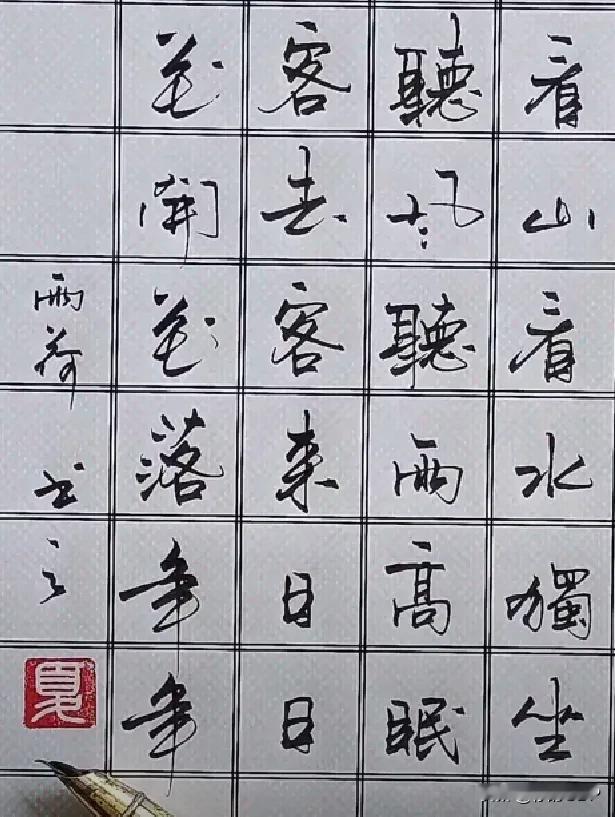 看山看水獨坐
聽風聽雨高眠
客去客來日日
花開花落年年
雨荷 书之
夏